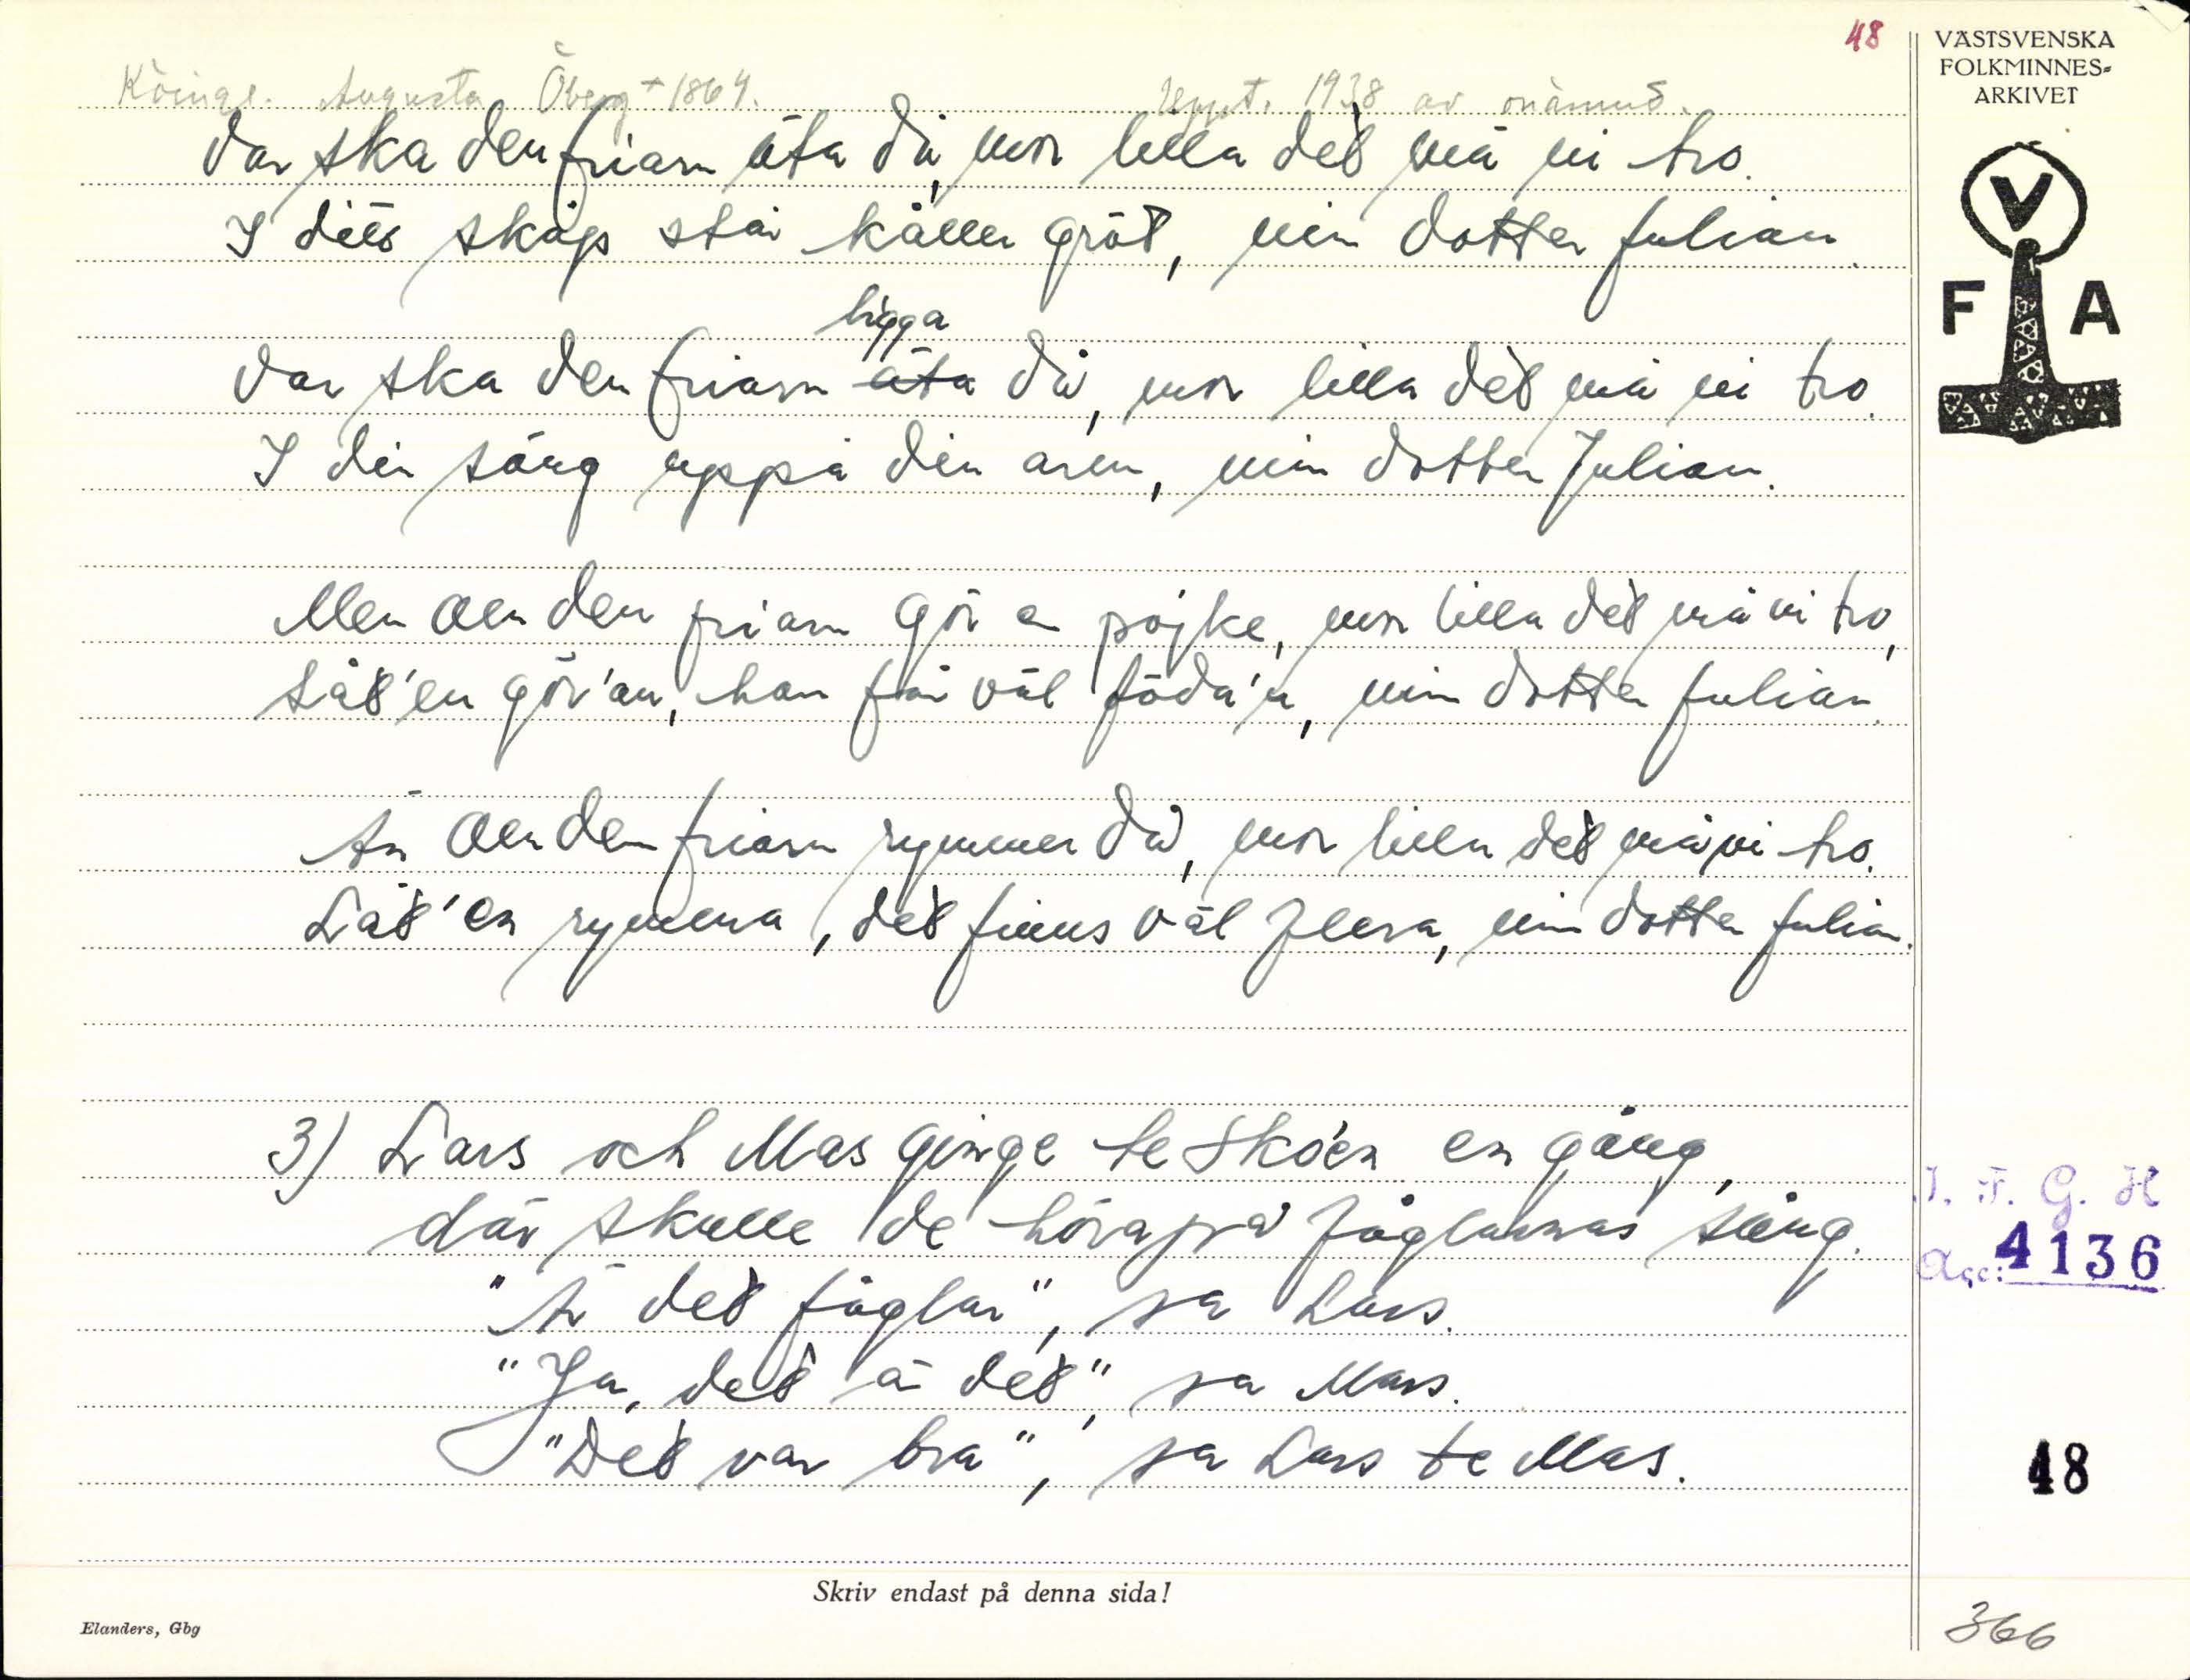 48
Köinge. Augusta Öberg 1864. uppt. 1938 av onämnd.
Var ska den friarn äta då, mor lilla det må ni tro.
I ditt skåp står kaller gröt, min dotter Julian.
ligga
Var ska den friarn äta då, mor lilla det må ni tro.
I din säng uppå din arm, min dotter Julian.
Men om den friarn gör en pojke, mor lilla det må ni tro,
Låt'en gör'an, han får väl föda'n, min dotter Julian.
Än om den friarn rymmer då, mor lilla det må ni tro.
Låt'en rymma, det finns väl flera, min dotter Julian.
3) Lars och Mas ginge te sko'en en gång,
där skulle de höra på fåglarnas sång.
"Är det fåglar", sa Lars.
"Ja, det ä det", sa Mars.
"Det var bra", sa Lars te Mas.
VÄSTSVENSKA
FOLKMINNES-
ARKIVET
V
F A
I. F. G. H
Acc: 4136
48
Skriv endast på denna sida!
Elanders, Gbg
366